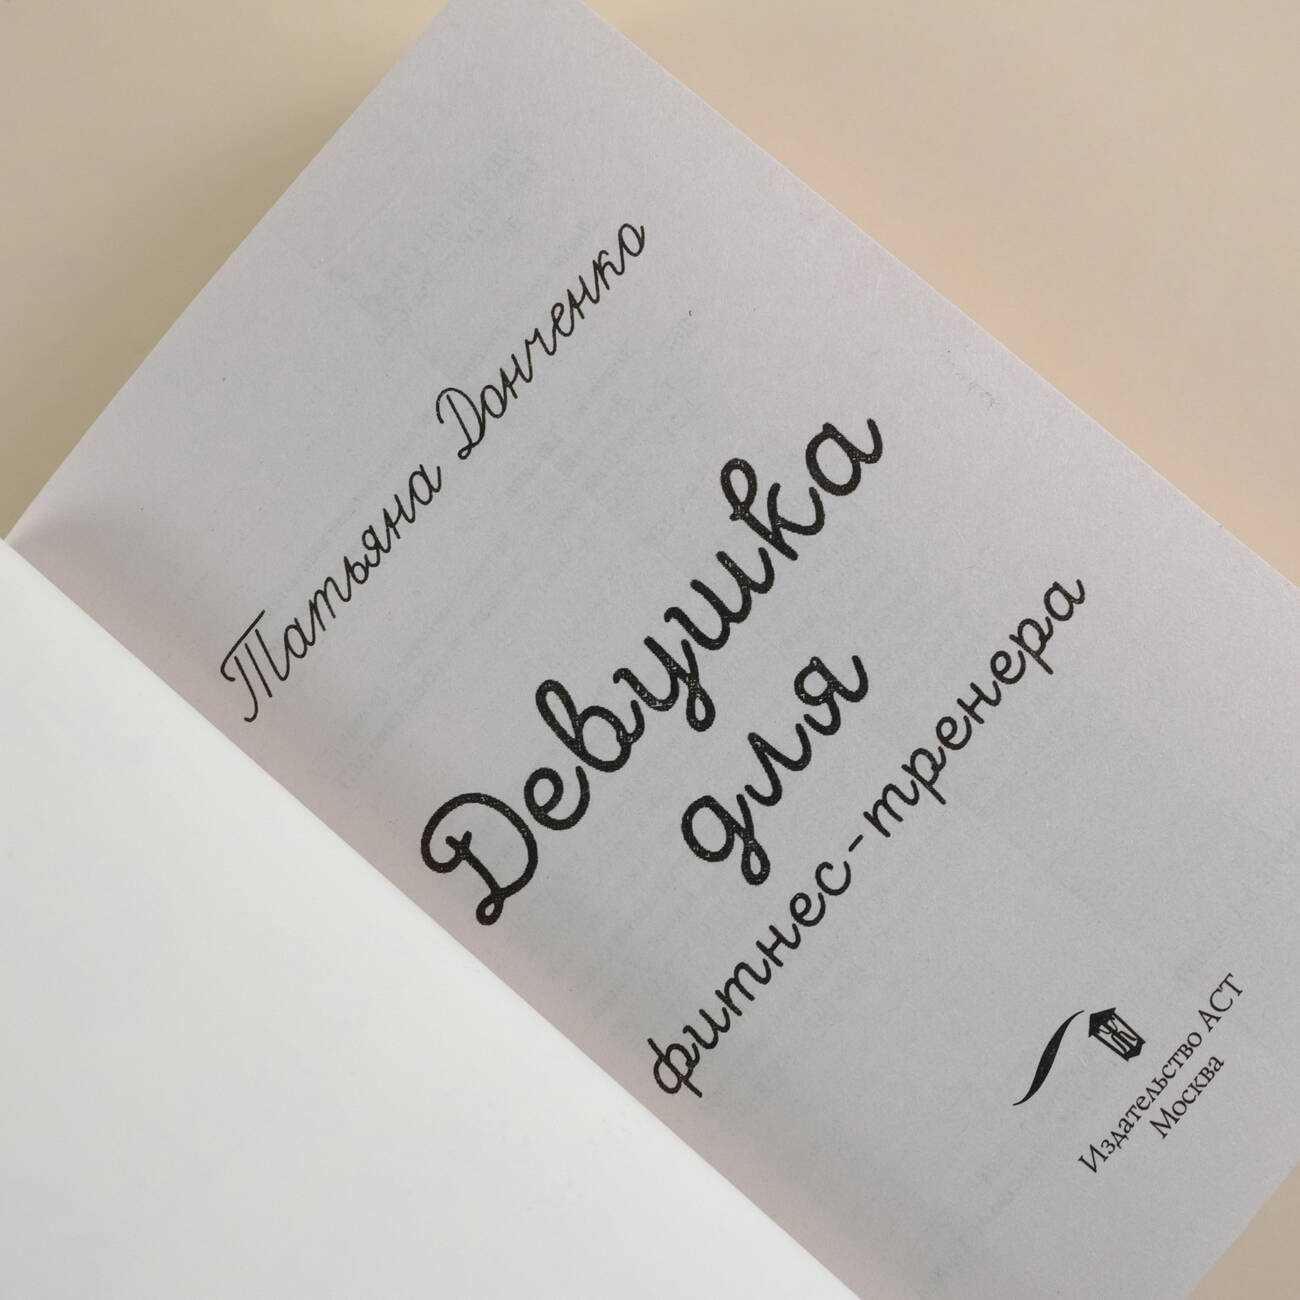 Татьяна Донченко
Девушка
для
фитнес-тренера
Издательство АСТ
Москва